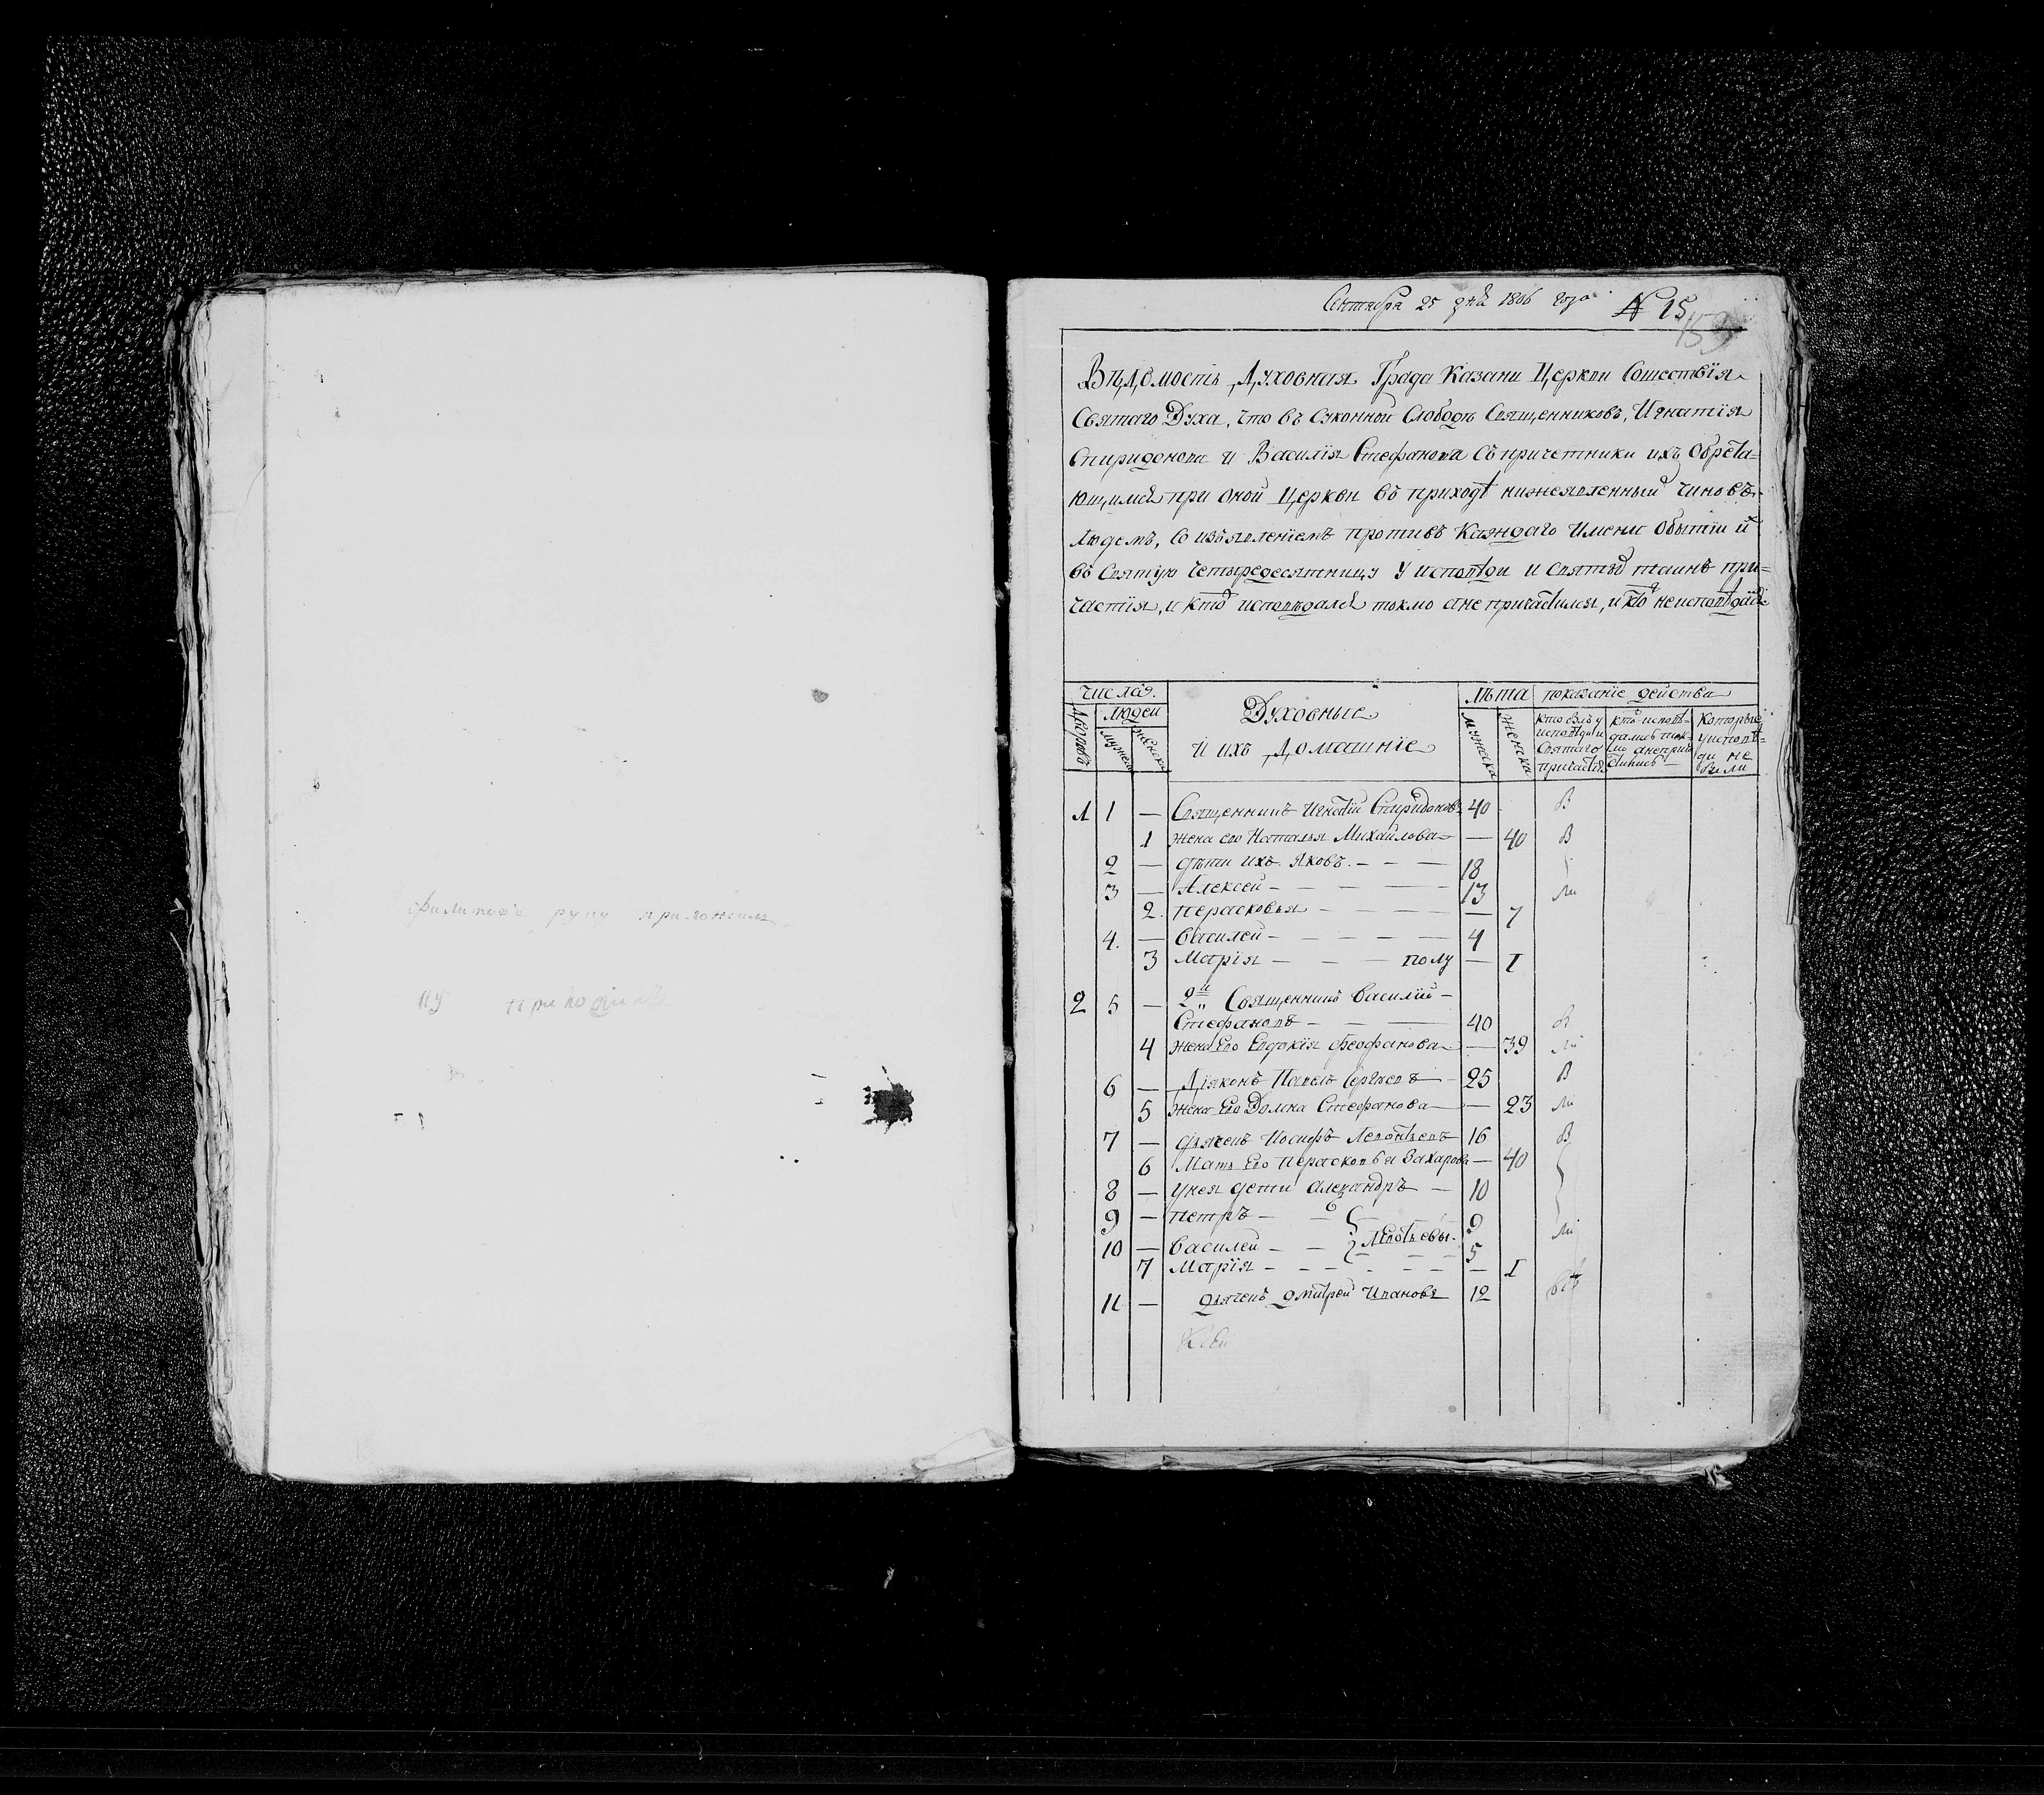 филиповъ руку приложилъ
Сентября 25 дня 1806 года № 15
159
Вѣдомость Духовная Града Казани Церкви Сошествїя
Святаго Духа, что въ Суконной Слободѣ Священниковъ, Игнатїя
Спиридонова и Василїя Стефанова съ причетники ихъ Обрета=
ющимся при оной Церкви въ приходѣ нижеявленныи чиновъ
Людемъ, Со изъявленїемъ противъ Каждаго Имени О бытїи и
въ Святую четыредесятницу у исповѣди и Святыхъ таинъ при=
частїя, и кто исповѣдался токмо а не причастился, и кто неисповѣдался
числа. Духовные лѣта показанїе действа
Дворовъ людей и ихъ Домашнїе мужеска женска кто былъ у исповѣди и Святаго причастїя кто исповѣ=дались ток=мо а неприча стились Которые у исповѣ=ди не были
мужеска женска
1 1 — Священникъ Игнатїй Спиридоновъ 40 В
1 жена его Наталья Михайлова — 40 В
2 — дѣти ихъ Яковъ — — — 18
3 — Алексей — — — — 13 ли
2 перасковья — — — 7
4. — Василей — — — — 4
3 Марїя — — — полу — 1
2 5 — 2й Священникъ Василїй —
Стефановъ — — — 40 В
4 жена Его Евдокїя Феофанова — 39 ли
6 — Дїяконъ Павелъ Сергѣевъ — 25 В
5 жена Его Домна Стефанова — — 23 ли
7 — дьячекъ Иосифъ Леонтьевъ 16 В
6 Мать Его Перасковья Захарова — 40
8 — У нея дети Александръ — 10
9 — петръ — — 9
10 — Василей — — Леонтьевы 5 ли
7 Марїя — — — — — 1
11 — дьячекъ дмитрей Ивановъ 12 былъ